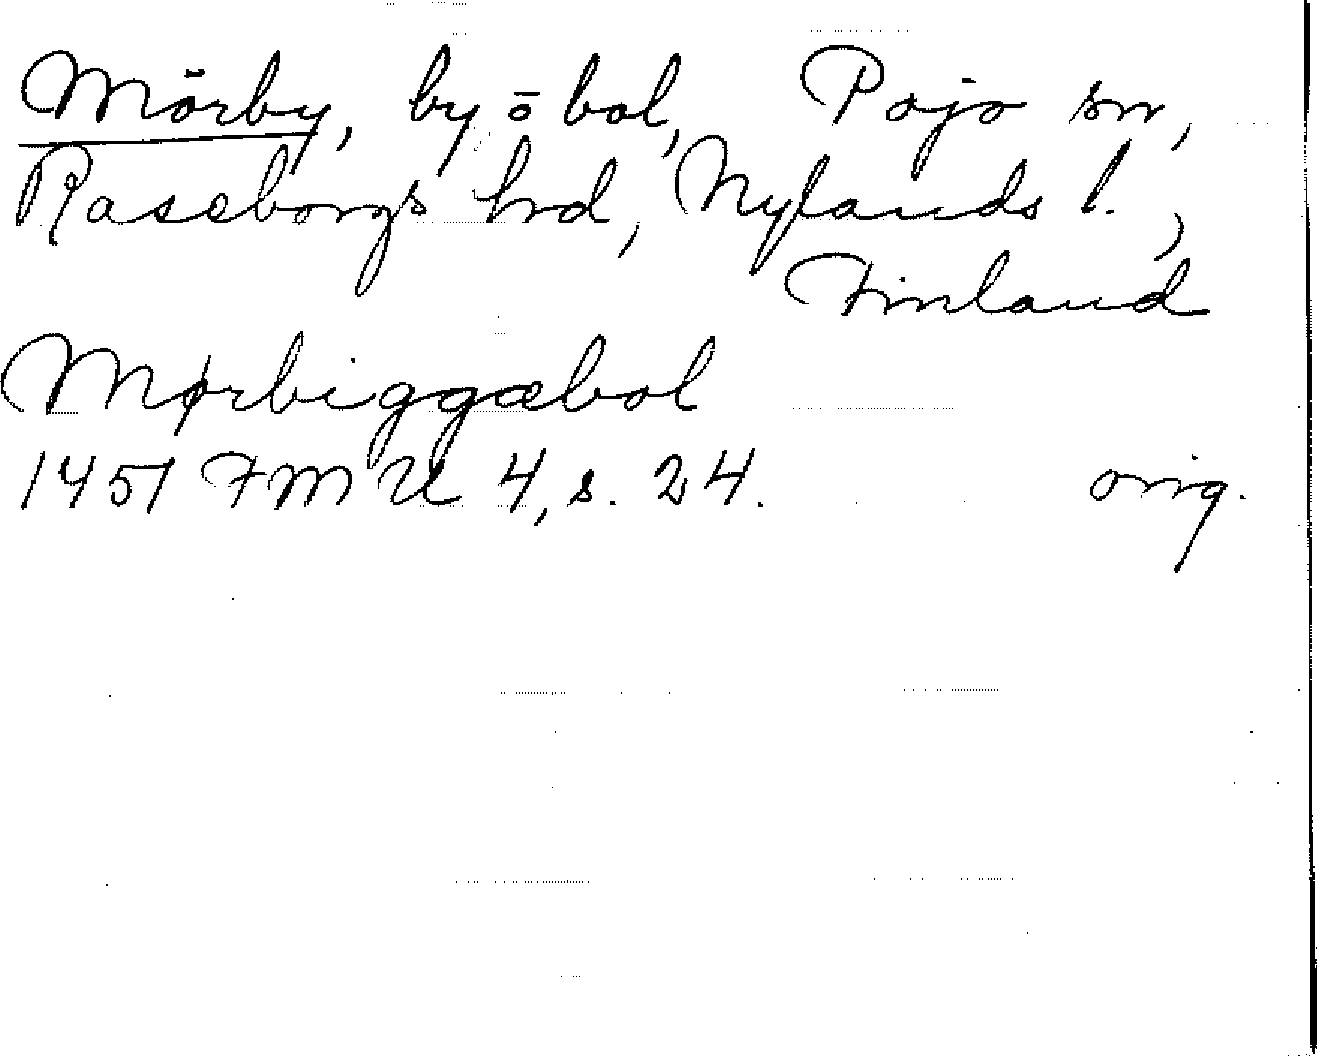 Mörby, by o bol, Pojo sn,
Raseborgs hrd, Nylands l.,
Finland
Mørbiggæbol
1451 FMU 4, s. 24. orig.